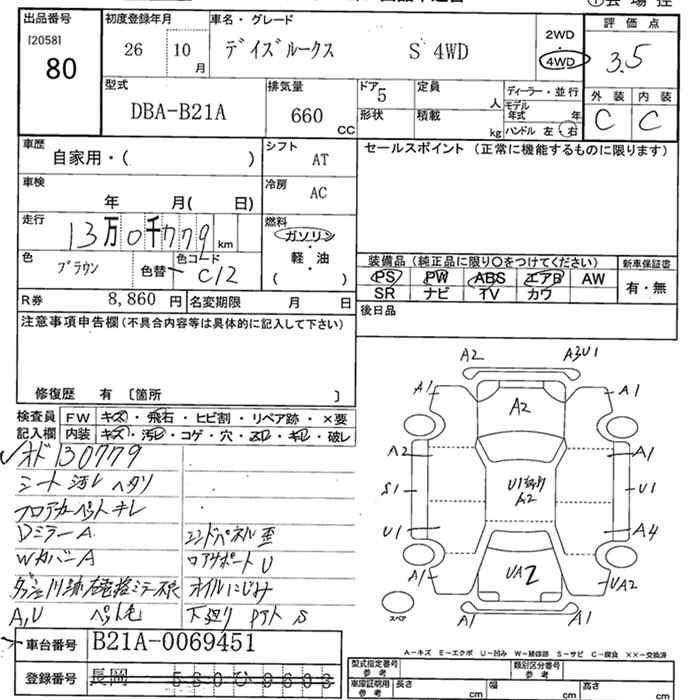 出品番号 初度登録年月 車名・グレード 評価点
[2058] 26 10 月 デイズルークス S 4WD 2WD・4WD 3.5
80
型式 DBA-B21A 排気量 660 CC ドア 5 定員 人 ディーラー・並行 外装 内装
形状 積載 kg モデル年式 年 ハンドル 左・右 C C
車歴 自家用・( ) シフト AT セールスポイント (正常に機能するものに限ります)
車検 年 月( 日) 冷房 AC
走行 13万0千779 km 燃料 ガソリン・軽油・( )
色 ブラウン 色替 色コード C12
装備品(純正品に限り○をつけてください) 新車保証書
PS PW ABS エアB AW 有・無
SR ナビ TV カワ
R券 8,860 円 名変期限 月 日 後日品
注意事項申告欄(不具合内容等は具体的に記入して下さい)
修復歴 有 [箇所 ]
検査員 FW キズ・飛石・ヒビ割・リペア跡・×要
記入欄 内装 キズ・汚レ・コゲ・穴・スレ・キレ・破レ
メド130779
シート汚レ ヘタリ
フロアカーペットキレ
DミラーA
WカバーA
A,U ペット毛
エンドパネル歪
ロアサポートU
オイルにじみ
下廻り S
A2 A3U1
A1 A2 A1
A2 A1
S1 U1 A2 U1
U1 A4
A1 UA2 UA2
A1 A1
スペア
A-キズ E-エクボ U-凹み W-補修跡 S-サビ C-腐食 ××-交換済
車台番号 B21A-0069451
登録番号 長岡 580ひ9603
型式指定番号 参考 類別区分番号 参考
車庫証明用 参考 長さ cm 幅 cm 高さ cm